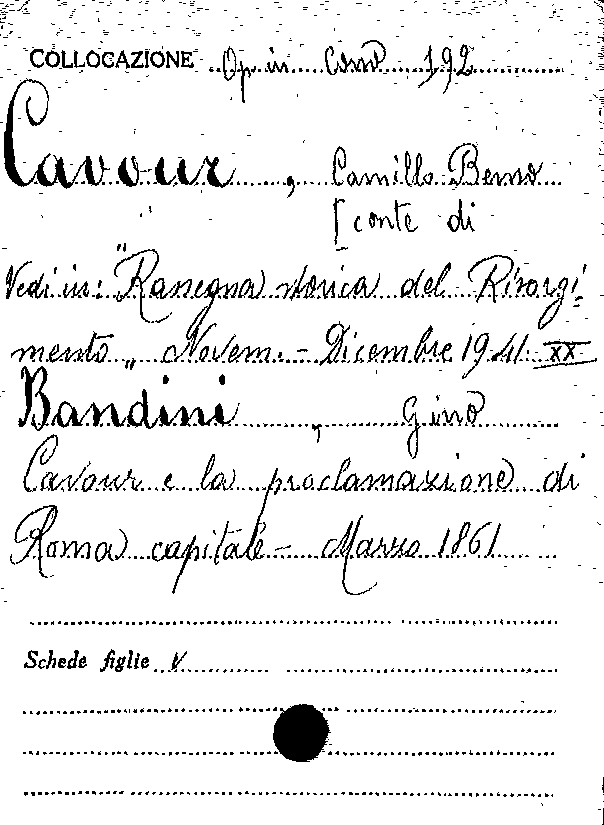 COLLOCAZIONE Op in Cons 192
Cavour, Camillo Benso
[conte di
Vedi in: "Rassegna storica del Risorgi=
mento„ Novem. - Dicembre 1941 XX
Bandini, Gino
Cavour e la proclamazione di
Roma capitale - Marzo 1861
Schede figlie V